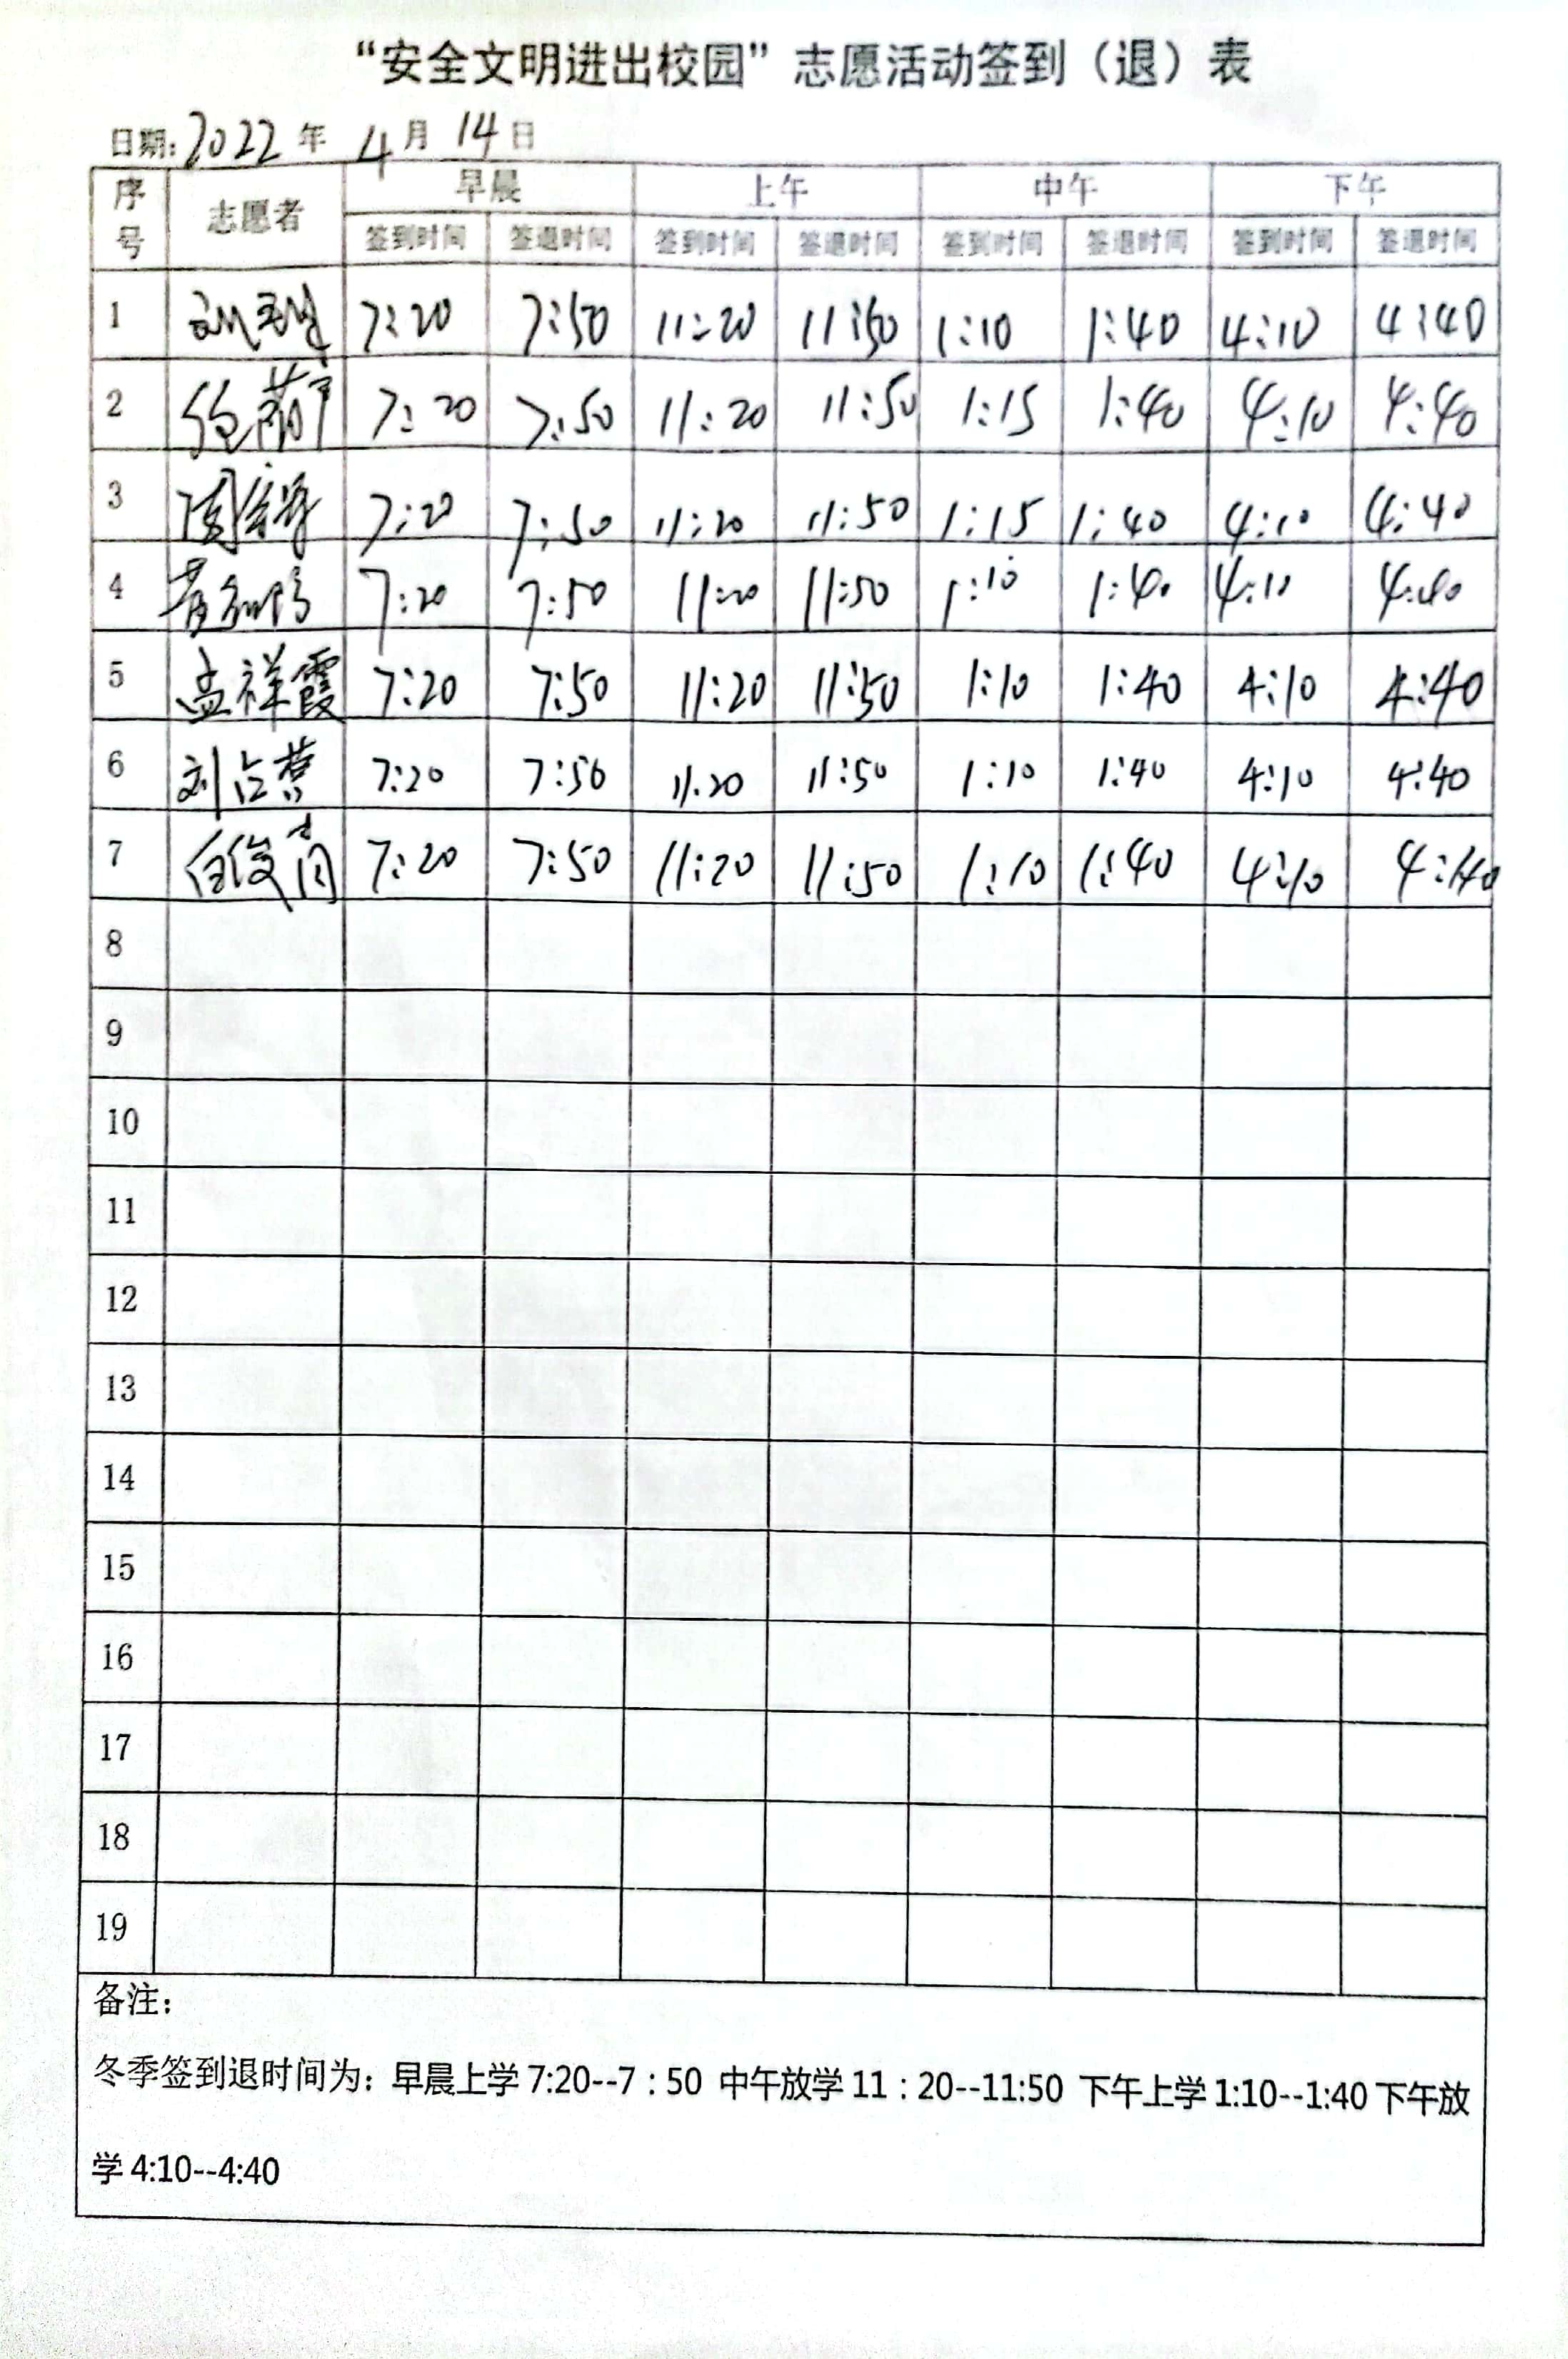 “安全文明进出校园”志愿活动签到（退）表
日期:2022年 4月 14日
序号 志愿者 早晨 上午 中午 下午
签到时间 签退时间 签到时间 签退时间 签到时间 签退时间 签到时间 签退时间
1 7:20 7:50 11:20 11:50 1:10 1:40 4:10 4:40
2 7:20 7:50 11:20 11:50 1:15 1:40 4:10 4:40
3 7:20 7:50 11:20 11:50 1:15 1:40 4:10 4:40
4 7:20 7:50 11:20 11:50 1:10 1:40 4:10 4:40
5 孟祥霞 7:20 7:50 11:20 11:50 1:10 1:40 4:10 4:40
6 刘 7:20 7:50 11:20 11:50 1:10 1:40 4:10 4:40
7 白俊 7:20 7:50 11:20 11:50 1:10 1:40 4:10 4:40
8
9
10
11
12
13
14
15
16
17
18
19
备注：
冬季签到退时间为：早晨上学 7:20--7：50 中午放学 11：20--11:50 下午上学 1:10--1:40 下午放
学 4:10--4:40